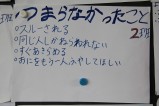 つまらなかったこと
2班
○スルーされる
○同じ人しかねらわれない
○すぐあきらめる
○おにをもう一人ふやしてほしい